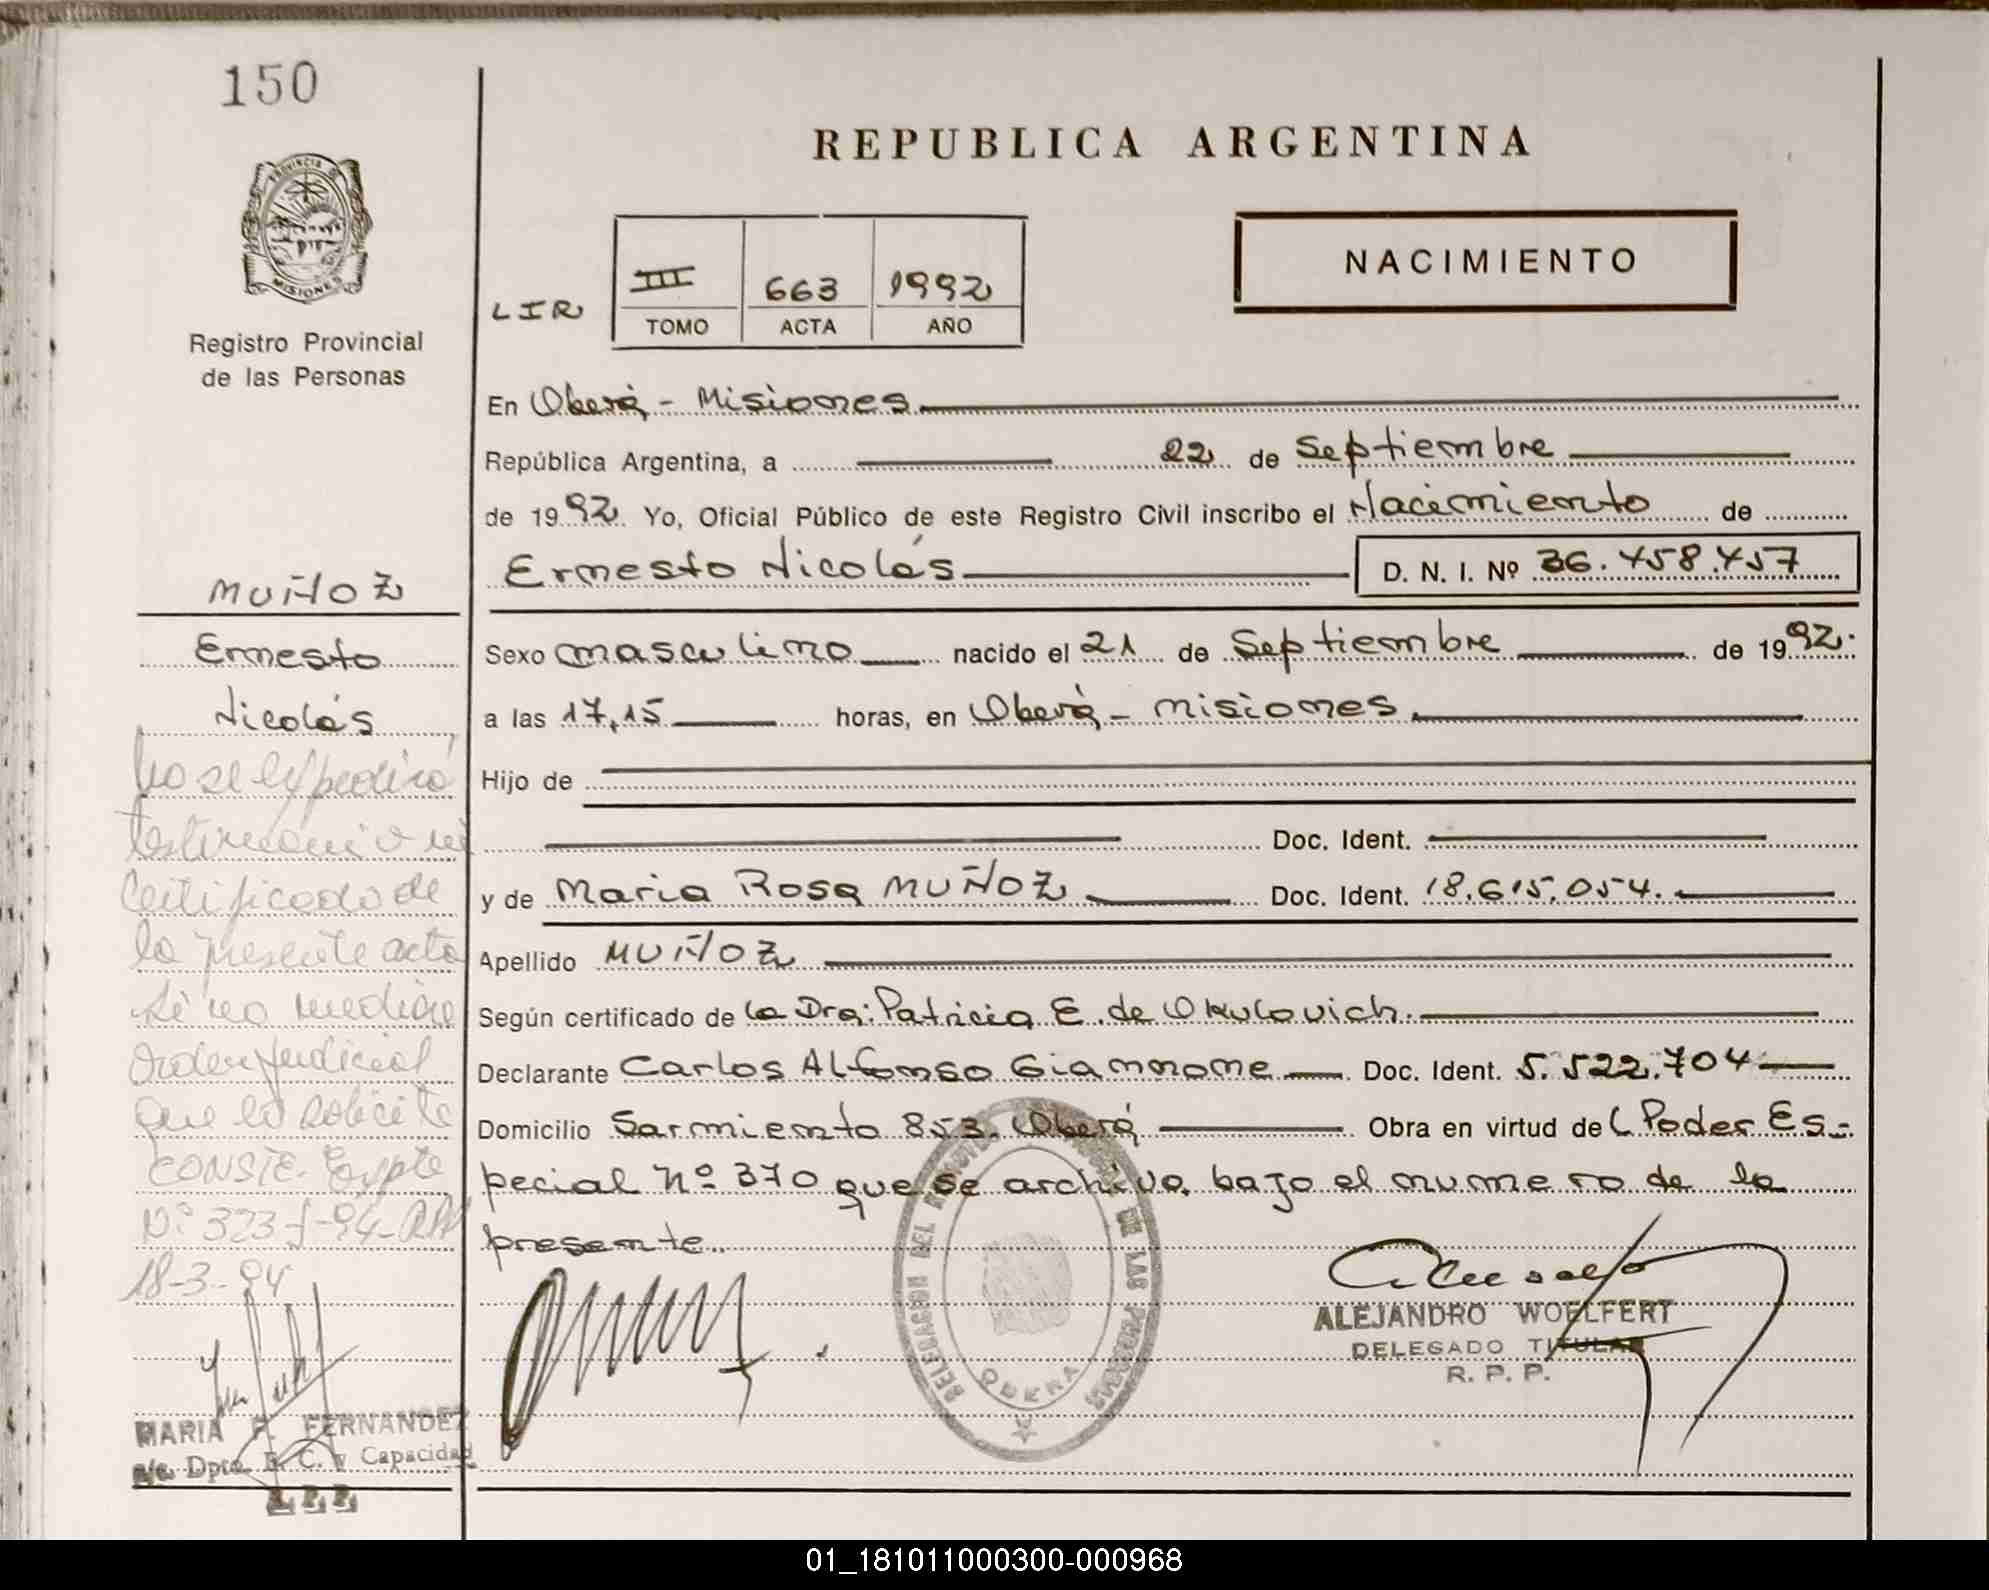 150
REPUBLICA ARGENTINA
PROVINCIA DE
MISIONES
Registro Provincial
de las Personas
NACIMIENTO
LIR
III 663 1992
TOMO ACTA AÑO
En Oberá - Misiones
República Argentina, a 22 de Septiembre
de 1992 Yo, Oficial Público de este Registro Civil inscribo el Nacimiento de
Ernesto Nicolás D. N. I. Nº 36.458.457
MUÑOZ
Ernesto
Nicolás
Sexo masculino nacido el 21 de Septiembre de 1992.
a las 17,15 horas, en Oberá - misiones
Hijo de
Doc. Ident.
y de Maria Rosa MUÑOZ Doc. Ident. 18.615.054.
Apellido MUÑOZ
Según certificado de la Dra: Patricia E. de Okulovich.
Declarante Carlos Alfonso Giannone Doc. Ident. 5.522.704
Domicilio Sarmiento 853. Oberá Obra en virtud del Poder Es-
pecial Nº 370 que se archiva bajo el numero de la
presente.
No se expedirá
testimonio ni
Certificado de
la presente acta
si no medie
Orden Judicial
que lo solicite
CONSTE. Expte
Nº 323-f-94-
18-3-94
DELEGACION DEL REGISTRO DE LAS PERSONAS
OBERA
ALEJANDRO WOELFERT
DELEGADO TITULAR
R. P. P.
MARIA F. FERNANDEZ
a/c. Dpto. E. C. y Capacidad
R. P. P.
01_181011000300-000968